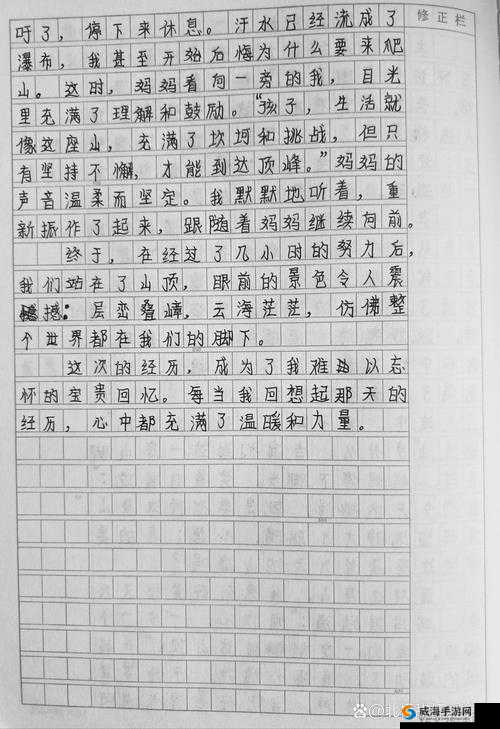 吁了，停下来休息。汗水已经流成了
修正栏
瀑布，我甚至开始后悔为什么要来爬
山。这时，妈妈看向一旁的我，目光
里充满了理解和鼓励。“孩子，生活就
像这座山，充满了坎坷和挑战，但只
有坚持不懈，才能到达顶峰。”妈妈的
声音温柔而坚定。我默默地听着，重
新振作了起来，跟随着妈妈继续向前。
终于，在经过了几小时的努力后，
我们站在了山顶，眼前的景色令人震
撼：层峦叠嶂，云海茫茫，仿佛整
个世界都在我们的脚下。
这次的经历，成为了我难以忘
怀的宝贵回忆。每当我回想起那天的
经历，心中都充满了温暖和力量。
威海手游网